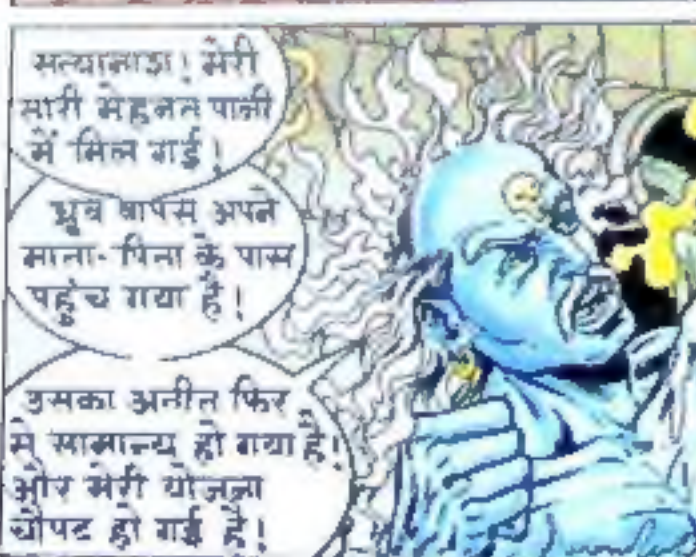 सत्यानाश! मेरी
सारी मेहनत पानी
में मिल गई!
ध्रुव वापस अपने
माता-पिता के पास
पहुंच गया है!
उसका अतीत फिर
से सामान्य हो गया है!
और मेरी योजना
चौपट हो गई है!